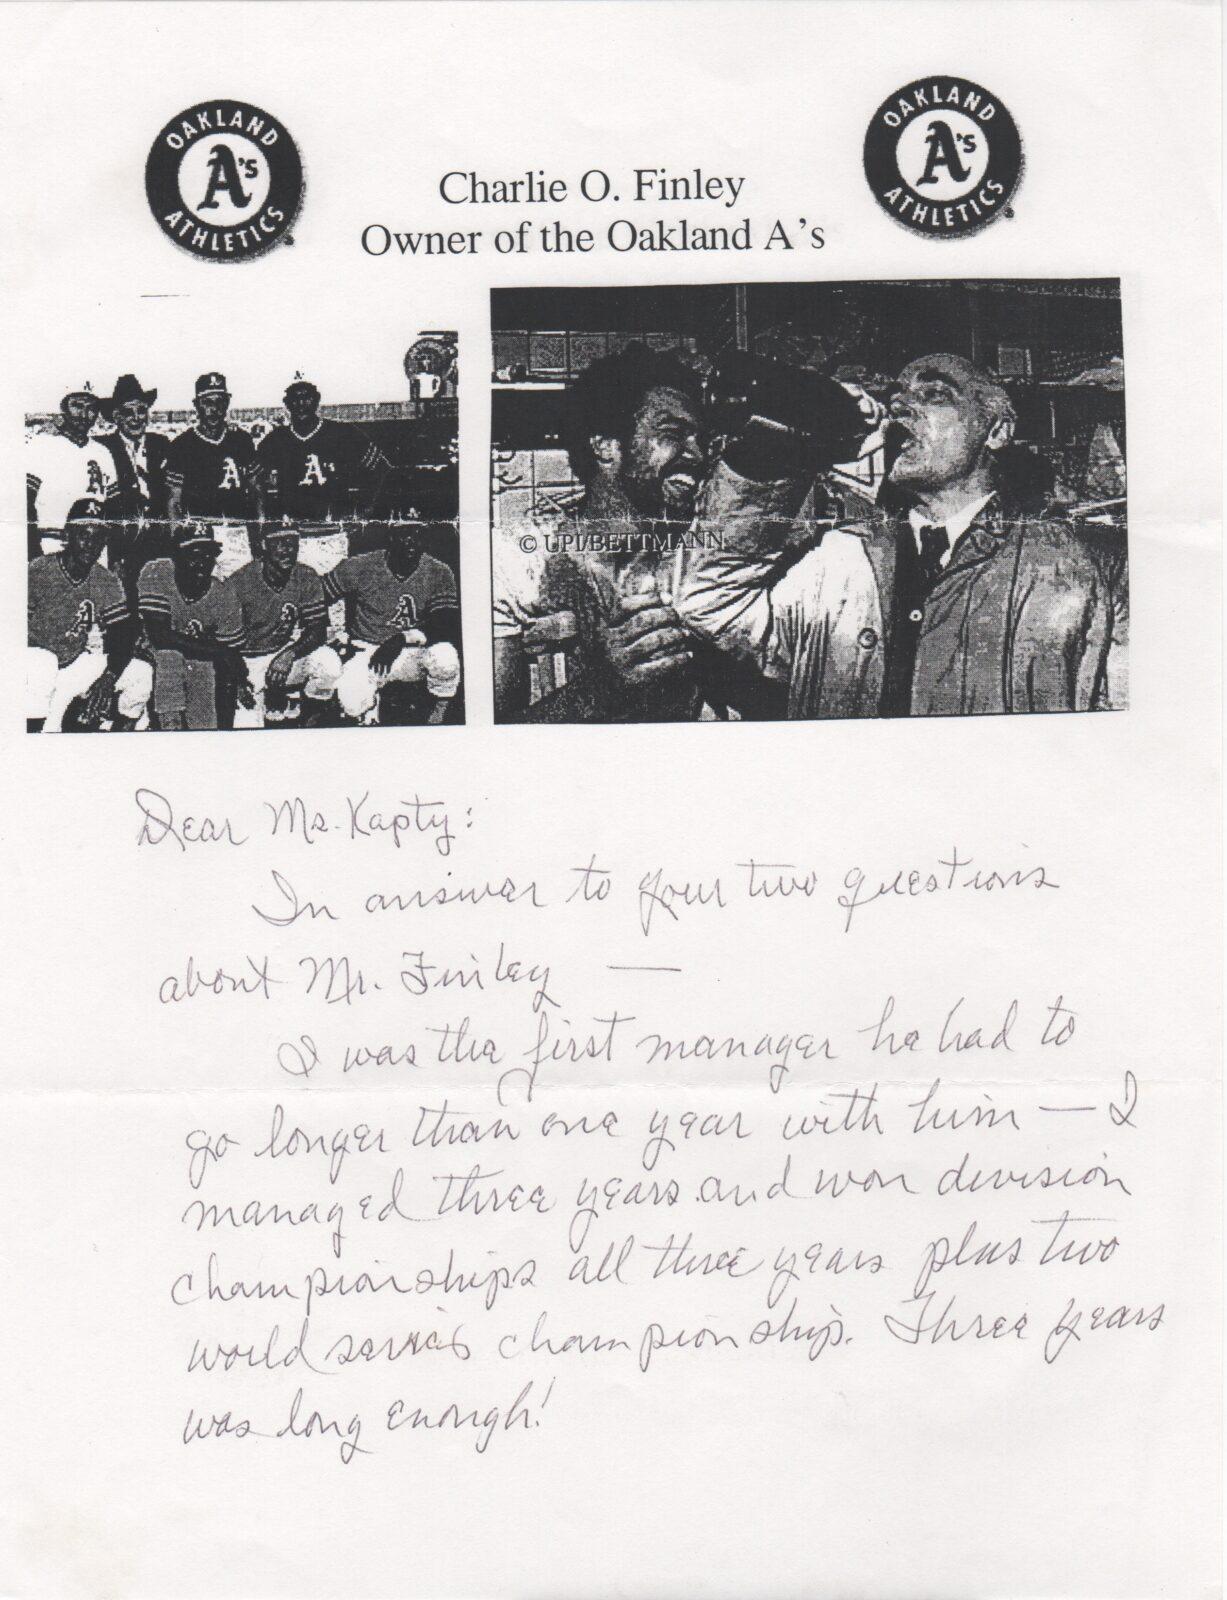 OAKLAND A's ATHLETICS
OAKLAND A's ATHLETICS
Charlie O. Finley
Owner of the Oakland A's
© UPI/BETTMANN
Dear Ms. Kapty:
In answer to your two questions
about Mr. Finley —
I was the first manager he had to
go longer than one year with him — I
managed three years and won division
championships all three years plus two
world series championship. Three years
was long enough!